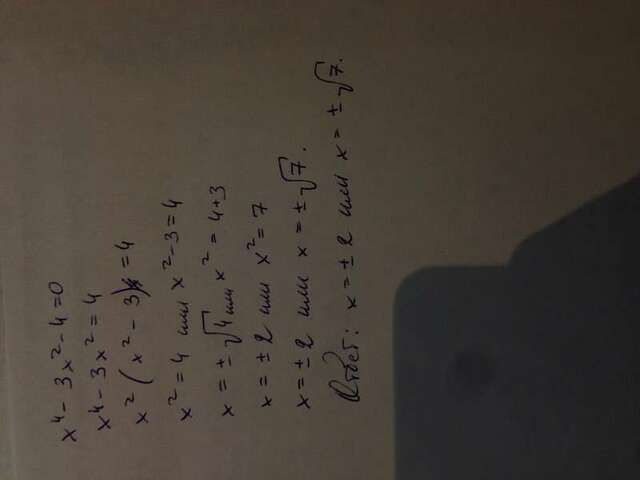 x⁴ - 3x² - 4 = 0
x⁴ - 3x² = 4
x² (x² - 3) = 4
x² = 4 или x² - 3 = 4
x = ±√4 или x² = 4+3
x = ±2 или x² = 7
x = ±2 или x = ±√7.
Ответ: x = ±2 или x = ±√7.